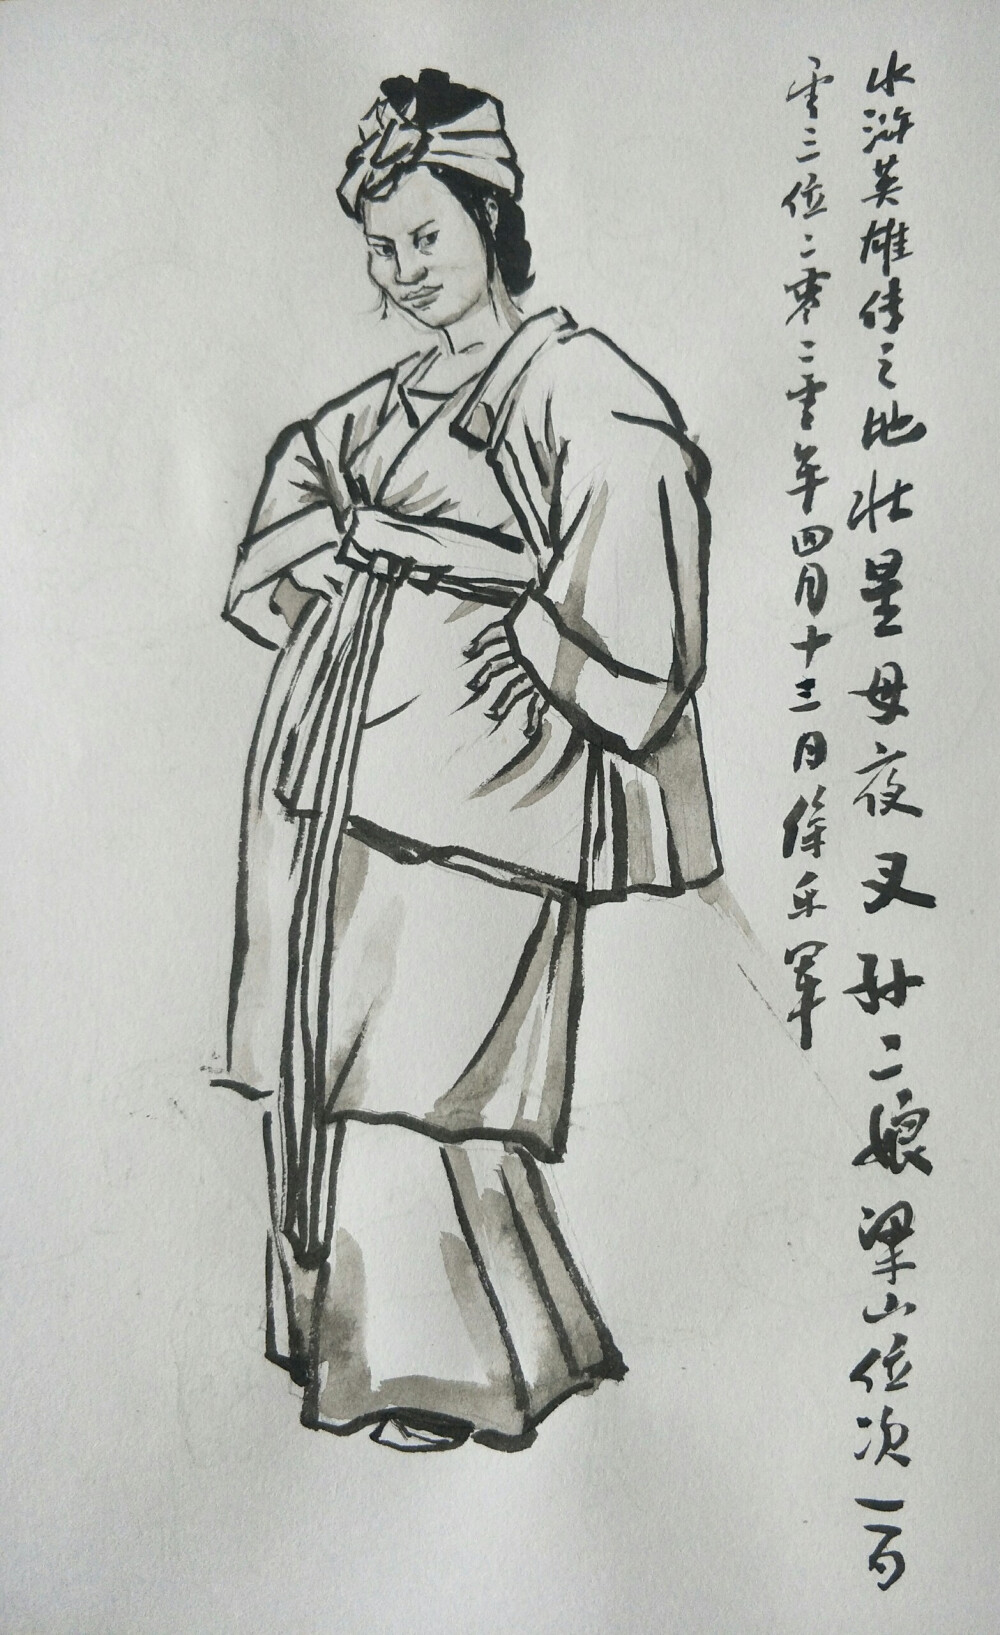 水浒英雄传之地壮星母夜叉孙二娘梁山位次一百
零三位二零二零年四月十三日徐乐军